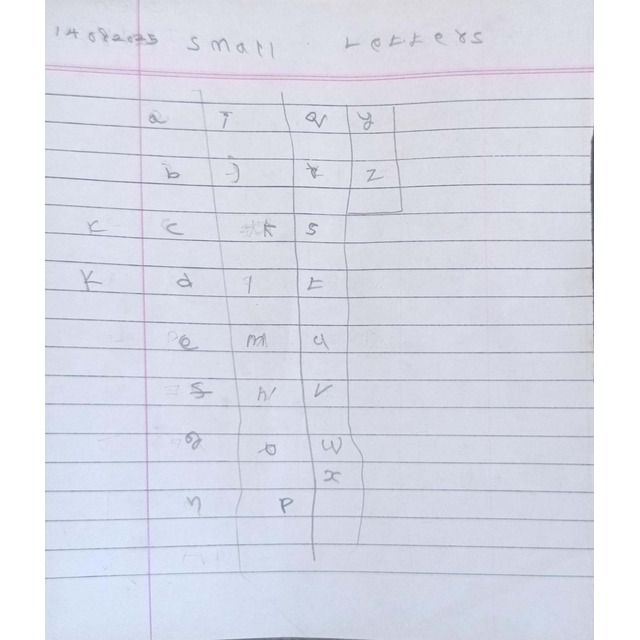 14082025 small Letters
a i q y
b j r z
k c k s
K d l t
e m u
f n v
g o w
x
h p